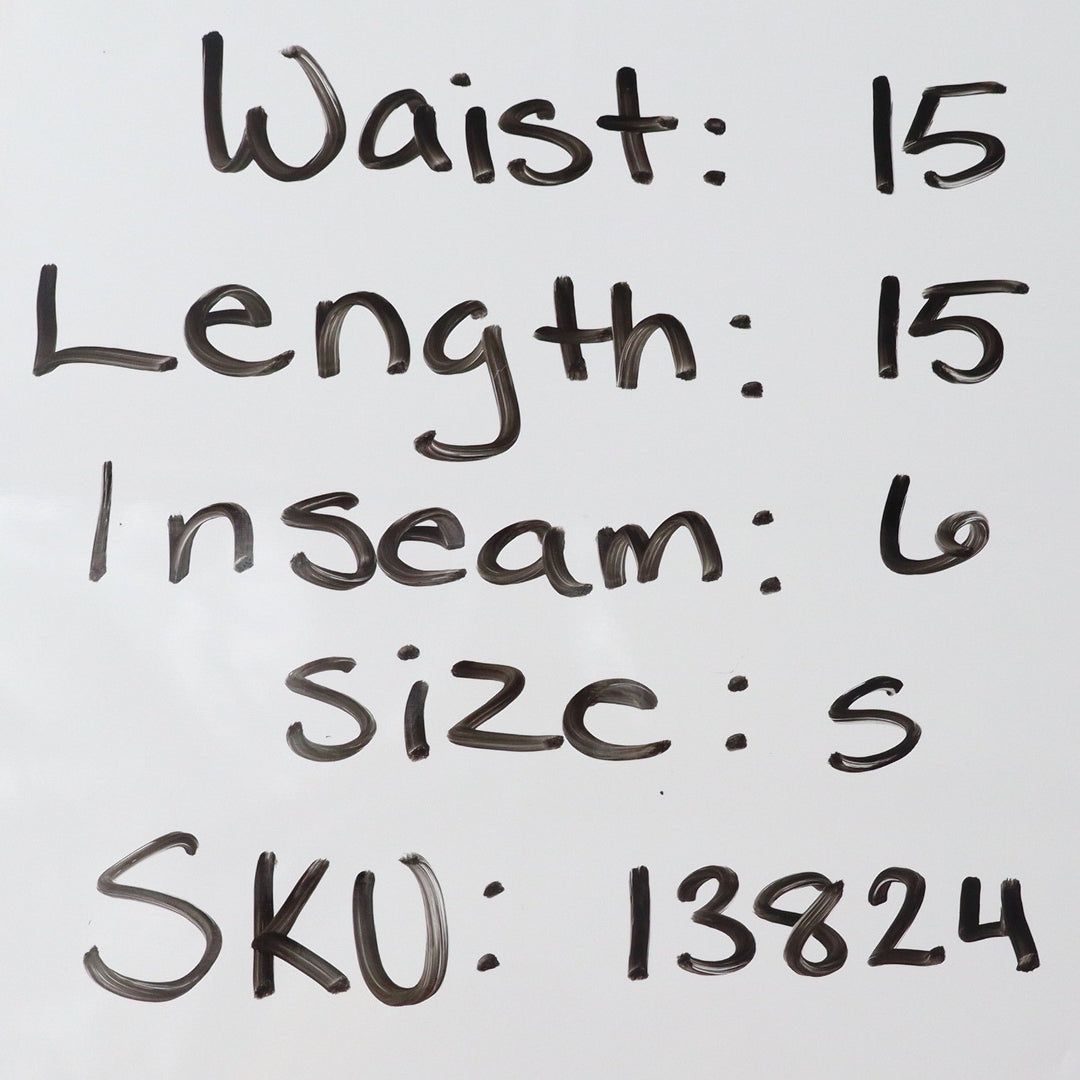 Waist: 15
Length: 15
Inseam: 6
Size: S
SKU: 13824